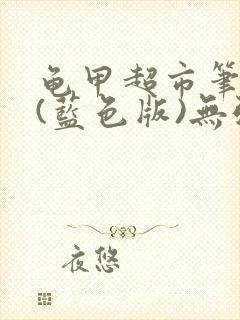 龟甲超市筆
(藍色版)無
夜悠